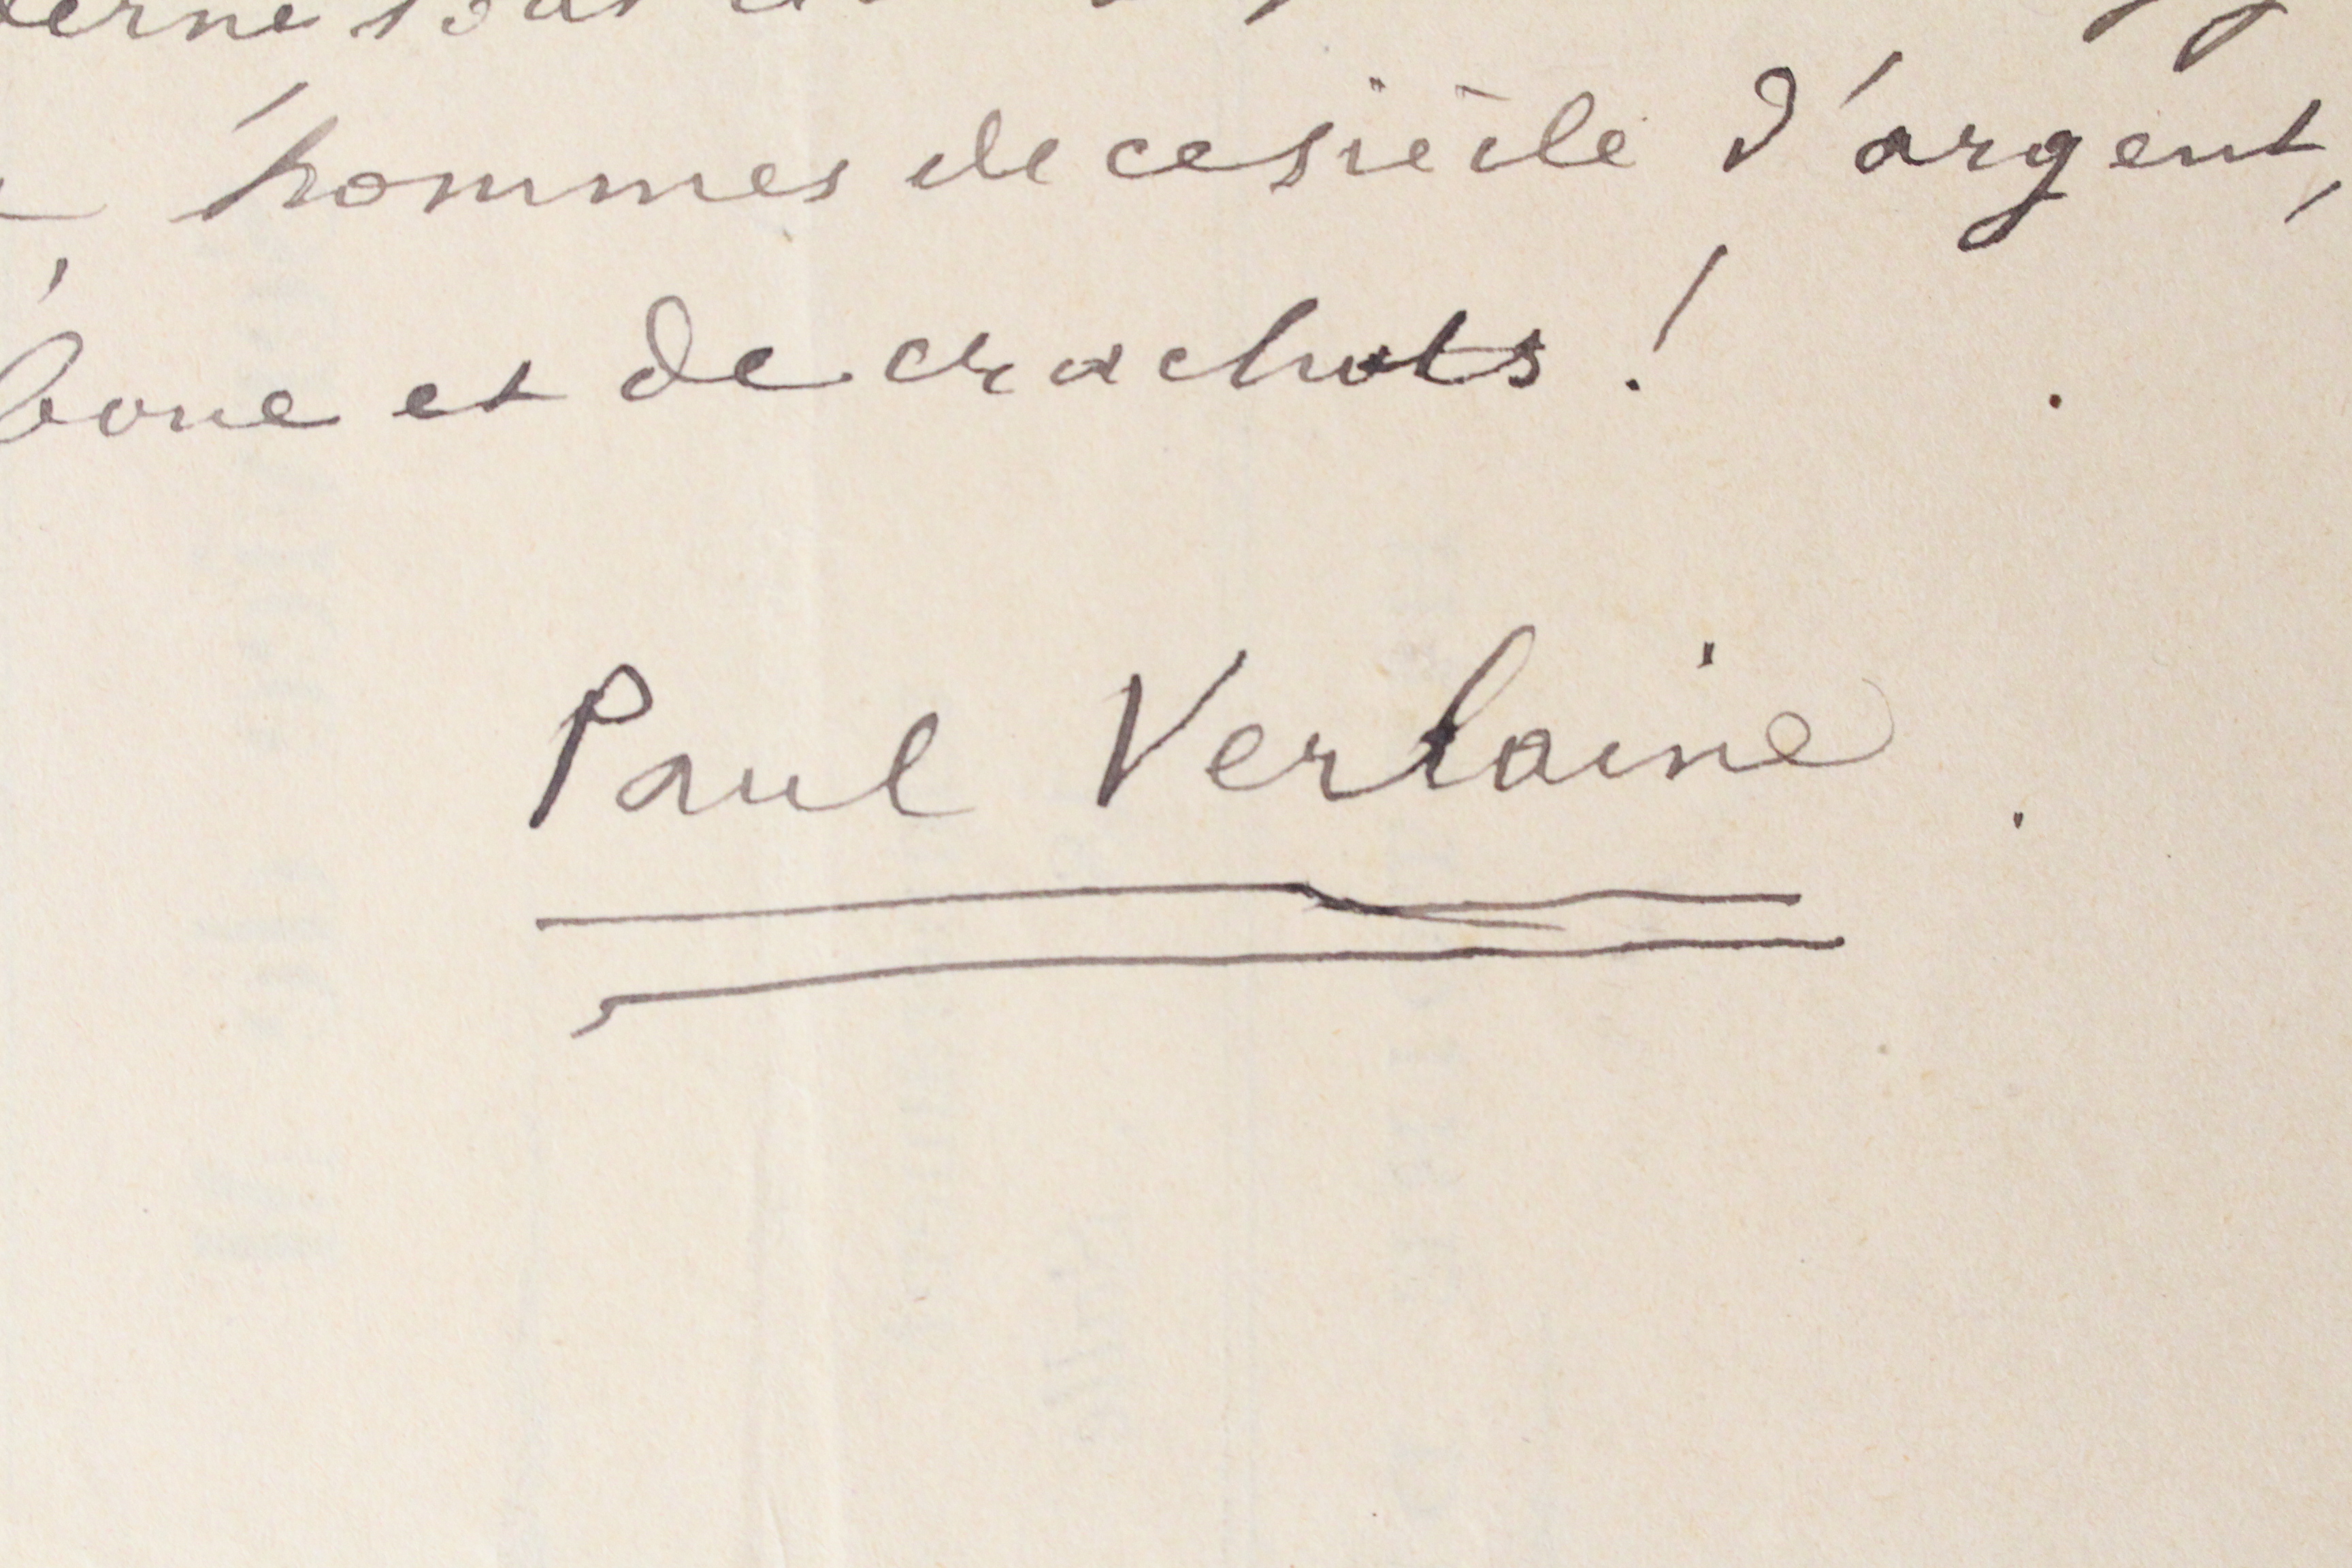 hommes de ce siècle d'argent,
boue et de crachats !
Paul Verlaine.